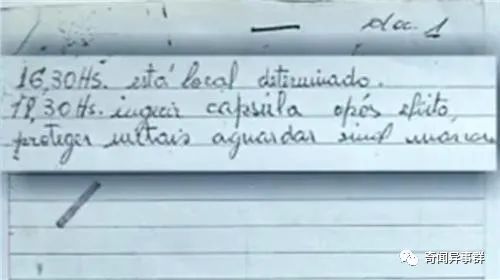 doc. 1
16,30 Hs. está local determinado.
18,30 Hs. ingerir capsula após efeito,
proteger metais aguardar sinal mascara
奇闻异事群